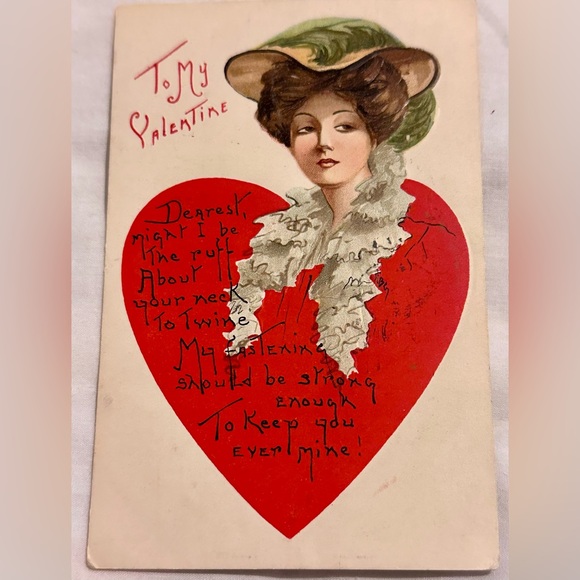 To My
Valentine
Dearest,
might I be
The ruff
About
your neck
To Twine
My fastening
should be strong
enough
To Keep you
ever mine!